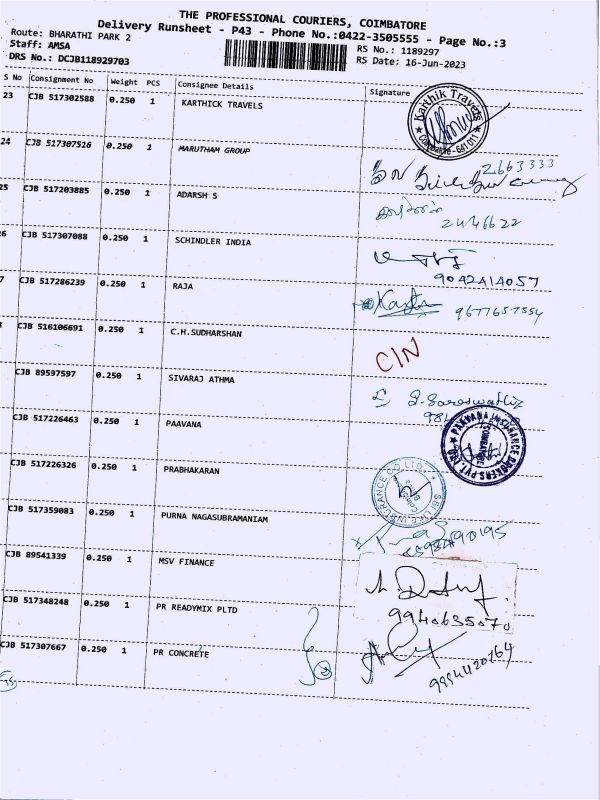 THE PROFESSIONAL COURIERS, COIMBATORE
Delivery Runsheet - P43 - Phone No.:0422-3505555 - Page No.:3
Route: BHARATHI PARK 2
Staff: AMSA
DRS No.: DCJB118929703
RS No.: 1189297
RS Date: 16-Jun-2023
S No Consignment No Weight PCS Consignee Details Signature
23 CJB 517302588 0.250 1 KARTHICK TRAVELS
Karthik Travels
Coimbatore - 641 011
24 CJB 517307516 0.250 1 MARUTHAM GROUP
2663333
25 CJB 517203885 0.250 1 ADARSH S
2446622
6 CJB 517307088 0.250 1 SCHINDLER INDIA
9042414057
7 CJB 517286239 0.250 1 RAJA
9677657554
CJB 516106691 0.250 1 C.H.SUDHARSHAN
C/N
CJB 89597597 0.250 1 SIVARAJ ATHMA
S. Saraswathi
CJB 517226463 0.250 1 PAAVANA
PAAVANA INSURANCE BROKERS PVT. LTD.
COIMBATORE
CJB 517226326 0.250 1 PRABHAKARAN
SBI LIFE INSURANCE CO LTD.
CJB 517359083 0.250 1 PURNA NAGASUBRAMANIAM
CJB 89541339 0.250 1 MSV FINANCE
9940635070
CJB 517348248 0.250 1 PR READYMIX PLTD
CJB 517307667 0.250 1 PR CONCRETE
9994420764